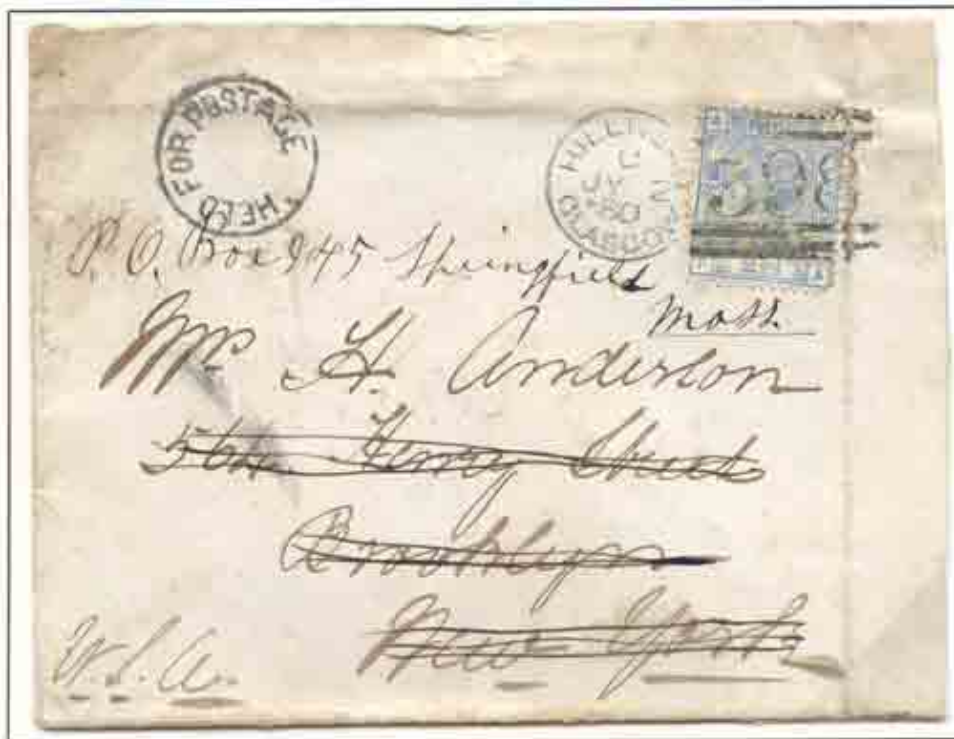 HELD FOR POSTAGE
HILL
JY
80
GLASGOW
398
P.O. Box 945 Springfield
Mass.
Mr. H. Anderson
564 Henry Street
Brooklyn
New York
U.S.A.